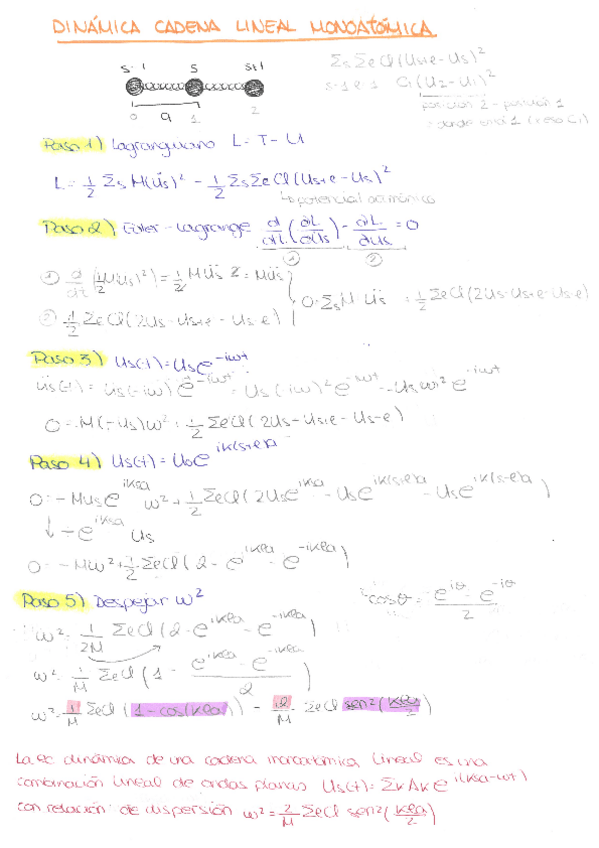 DINÁMICA CADENA LINEAL MONOATÓMICA
s-1 s s+1
0 a 1 2
Σs Σe Cl (Us+e - Us)²
s=1 e=1 C1 (U2 - U1)²
posición 2 - posición 1
Paso 1) Lagrangiano L = T - U
L = 1/2 Σs M(u̇s)² - 1/2 Σs Σe Cl (Us+e - Us)²
↳ potencial armónico
Paso 2) Euler-Lagrange d/dt (∂L/∂u̇s) - ∂L/∂us = 0
① ②
① d/dt (1/2 M u̇s)²) = 1/2 M üs 2 = M üs
② 1/2 Σe Cl (2Us - Us+e - Us-e)
0 = Σs M üs + 1/2 Σe Cl (2Us - Us+e - Us-e)
Paso 3) Us(t) = Us e^-iωt
üs(t) = Us (-iω) e^-iωt = Us (iω)² e^-iωt = -Us ω² e^-iωt
0 = M(-Us)ω² + 1/2 Σe Cl (2Us - Us+e - Us-e)
Paso 4) Us(t) = Us e^ik(s+e)a
0 = -M Us e^iksa ω² + 1/2 Σe Cl (2Us e^iksa - Us e^ik(s+e)a - Us e^ik(s-e)a)
↓ ÷ e^iksa Us
0 = -Mω² + 1/2 Σe Cl (2 - e^ikea - e^-ikea)
Paso 5) Despejar ω²
* cosθ = e^iθ - e^-iθ / 2
ω² = 1/2M Σe Cl (2 - e^ikea - e^-ikea)
ω² = 1/M Σe Cl (1 - e^ikea - e^-ikea / 2)
ω² = 1/M Σe Cl (1 - cos(kea)) = 2/M Σe Cl sen²(kea/2)
La ec dinámica de una cadena monoatómica lineal es una
combinación lineal de ondas planas Us(t) = Σk Ak e^i(ksa-ωt)
con relación de dispersión ω² = 2/M Σe Cl sen²(kea/2)